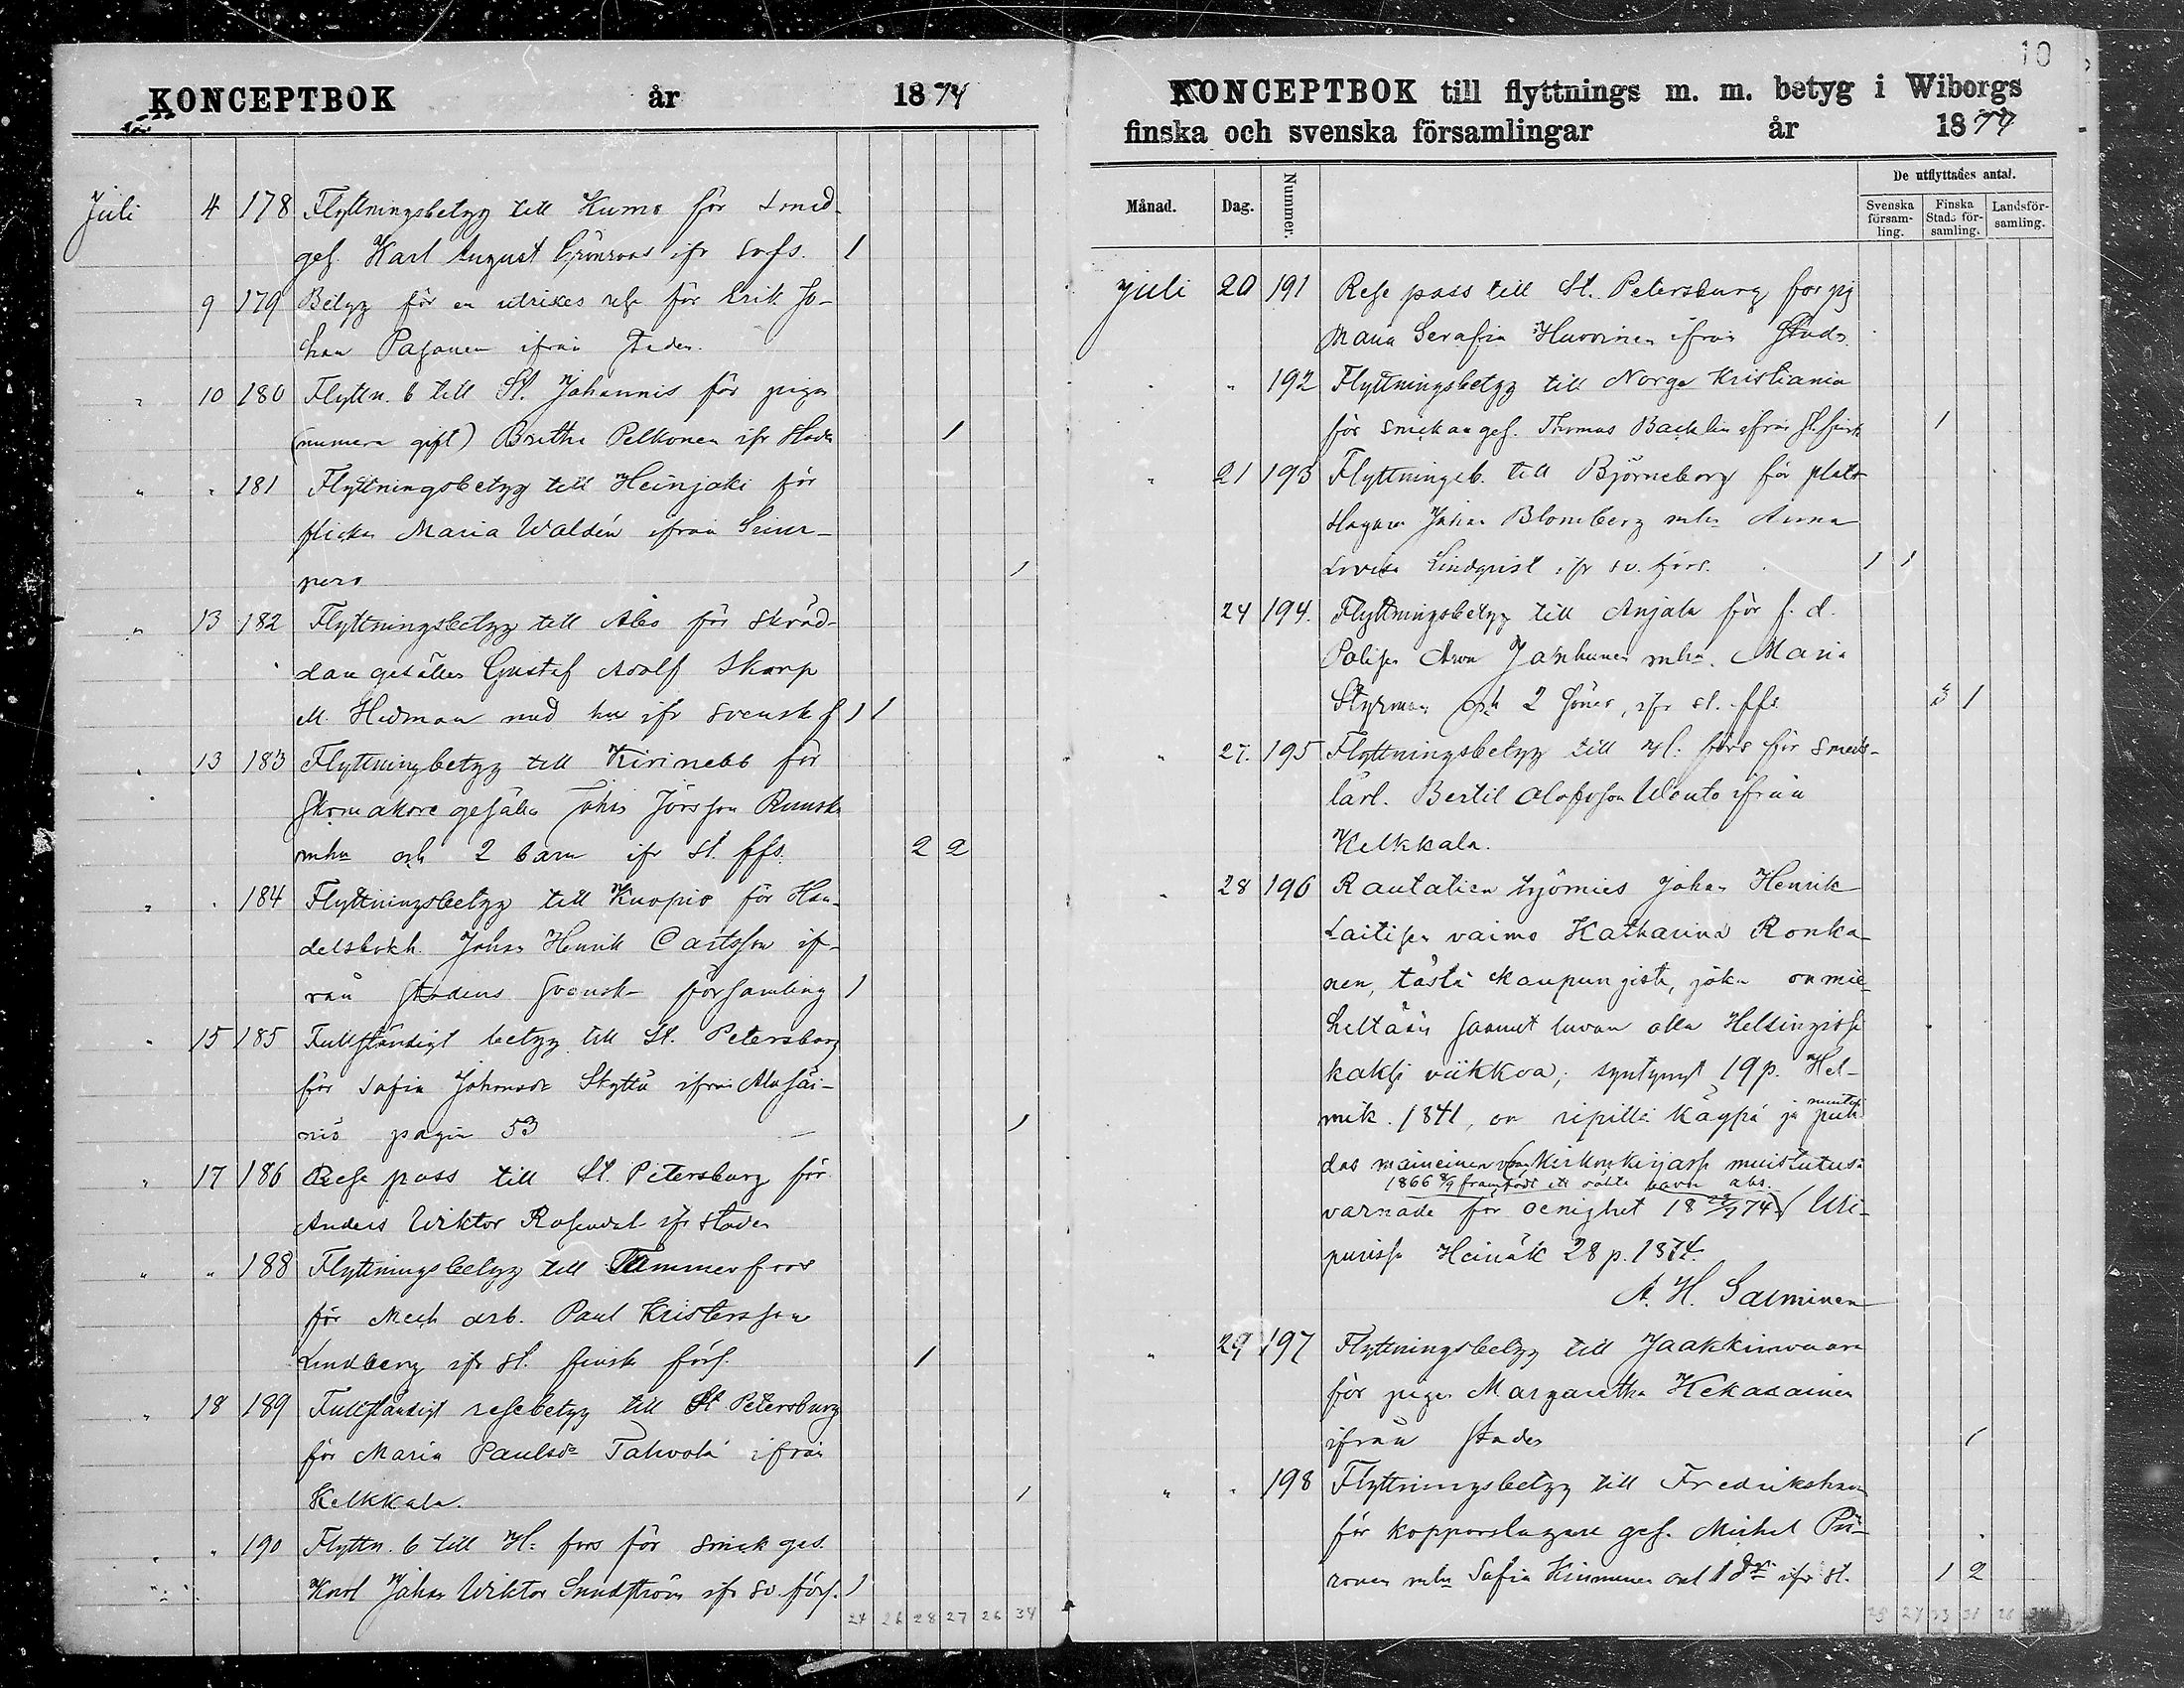 KONCEPTBOK år 1874
Juli 4 178 Flyttningsbetyg till Kumo för Smed-
ges. Karl August Grönroos ifr svfs. 1
9 179 Betyg för en utrikes rese för Erik Jo-
han Pasanen ifrån staden.
" 10 180 Flyttn. b till St. Johannis för pigan
(numera gift) Britha Pelkonen ifr staden 1
" " 181 Flyttningsbetyg till Heinjoki för
flickan Maria Waldén ifrån Suur-
pero 1
" 13 182 Flyttningsbetyg till Åbo för Skräd-
dare gesällen Gustaf Adolf Skarp
M. Hedman med hu ifr svensk f 1 1
" 13 183 Flyttningbetyg till Kirinebb för
Skomakare gesällen Johan Jörsson Runsk
mhu och 2 barn ifr St. ffs. 2 2
" " 184 Flyttningsbetyg till Kuopio för Han-
delsbokh. Johan Henrik Carlsson if-
rån Stadens Svenska församling 1
" 15 185 Fullständigt betyg till St. Petersborg
för Sofia Johansdr Skyttä ifrån Alasäi-
niö pagin 53 1
" 17 186 Rese pass till St. Petersburg för
Anders Wiktor Rosendal ifr staden
" " 188 Flyttningsbetyg till Tammerfors
för Mech arb. Paul Kristersson
Lindberg ifr st. finska förs. 1
" 18 189 Fullständigt resebetyg till St Petersburg
för Maria Paulsdr Tahvola ifrån
Kelkkala. 1
" " 190 Flyttn. b till H:fors för snick ges.
Karl Johan Wiktor Sundström ifr sv. förs. 1
24 26 28 27 26 34
10
KONCEPTBOK till flyttnings m. m. betyg i Wiborgs
finska och svenska församlingar år 1874
Månad. Dag. Nummer. De utflyttades antal.
Svenska församling. Finska Stads församling. Landsförsamling.
Juli 20 191 Rese pass till St. Petersburg för pig
Maria Serafia Huovinen ifrån staden
" " 192 Flyttningsbetyg till Norge Kristiania
för snickaregef. Thomas Bäcklin ifrån St. finsk 1
" 21 193 Flyttningsb. till Björneborg för plåt-
slagaren Johan Blomberg mhu Anna
Lovisa Lindqvist ifr sv. förs. 1 1
24 194. Flyttningsbetyg till Anjala för f. d.
Polisen Aron Janhunen mhu. Maria
Styrman och 2 söner, ifr st. ffs. 3 1
" 27. 195 Flyttningsbetyg till H:fors för smeds-
lärl. Bertil Olofsson Wento ifrån
Kelkkala.
" 28 196 Rautatien työmies Johan Henrik
Laitisen vaimo Katharina Ronka-
nen, tästä kaupungista, joka on mie-
heltään saanut luvan olla Helsingissä
kaksi viikkoa; syntynyt 19 p. Hel-
mik. 1841, on ripillä käypä ja
kirkonkirjassa muistutus:
varnade för oenighet 18 28/7 74) Wii-
purissa Heinäk 28 p. 1874.
A. H. Salminen
" 29 197 Flyttningsbetyg till Jaakkimvaara
för pigan Margaretha Kekalainen
ifrån staden 1
" " 198 Flyttningsbetyg till Fredrikshamn
för kopparslagare gef. Michel Pii-
ronen mhu Sofia Kinnunen och 1 dtr ifr st. 1 2